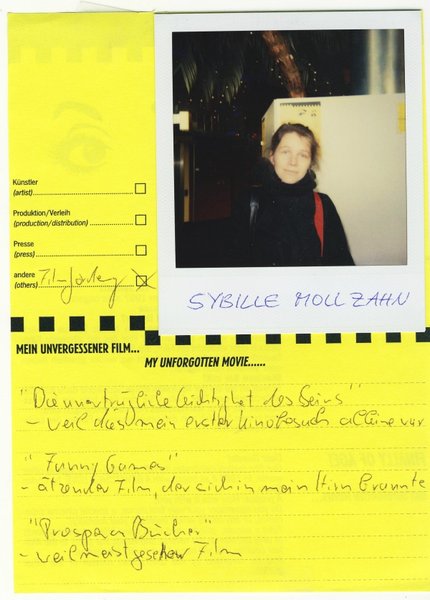 Künstler
(artist)
Produktion/Verleih
(production/distribution)
Presse
(press)
andere
(others) Filmförderg X
SYBILLE MOLLZAHN
MEIN UNVERGESSENER FILM...
MY UNFORGOTTEN MOVIE......
"Die unerträgliche Leichtigkeit des Seins"
- weil dies mein erster Kinobesuch alleine war
"Funny Games"
- ätzender Film, der sich in mein Hirn brannte
"Prosperos Bücher"
- weil meistgesehener Film